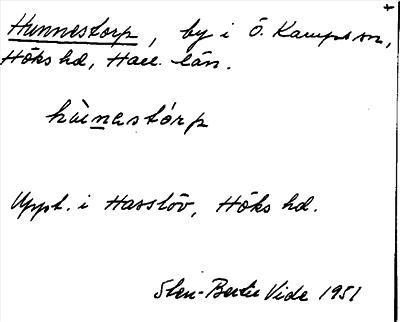 Hunnestorp, by i Ö. Karups sn,
Höks hd, Hall. län.
hùnastórp
Uppt. i Hasslöv, Höks hd.
Sten-Bertil Vide 1951